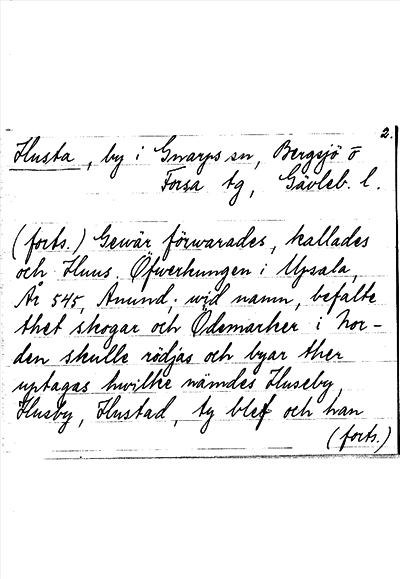 2.
Husta, by i Gnarps sn, Bergsjö o
Forsa tg, Gävleb. l.
(forts.) Gewär förwarades, kallades
och Huus. Öfwerkungen i Upsala,
År 545, Anund, wid namn, befalte
thet skogar och Ödemarker i Nor-
den skulle rödjas och byar ther
uptagas hwilke nämdes Huseby,
Husby, Hustad, ty blef och han
(forts.)